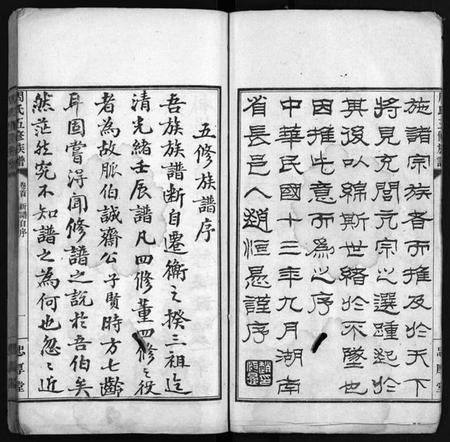 施諸宗族者而推及於天下
將見充閭亢宗之選踵起於
其後以綿斯世緒於不墜也
因推此意而為之序
中華民國十三年九月湖南
省長邑人趙恒惕謹序
五修族譜序
吾族族譜斷自遷衡之揆三祖迄
清光緒壬辰譜凡四修董四修之役
者為故脈伯誠齋公子賢時方七齡
耳固嘗得聞修譜之說於吾伯矣
然茫然究不知譜之為何也忽〻近
周氏五修族譜 卷首 新譜自序 忠厚堂